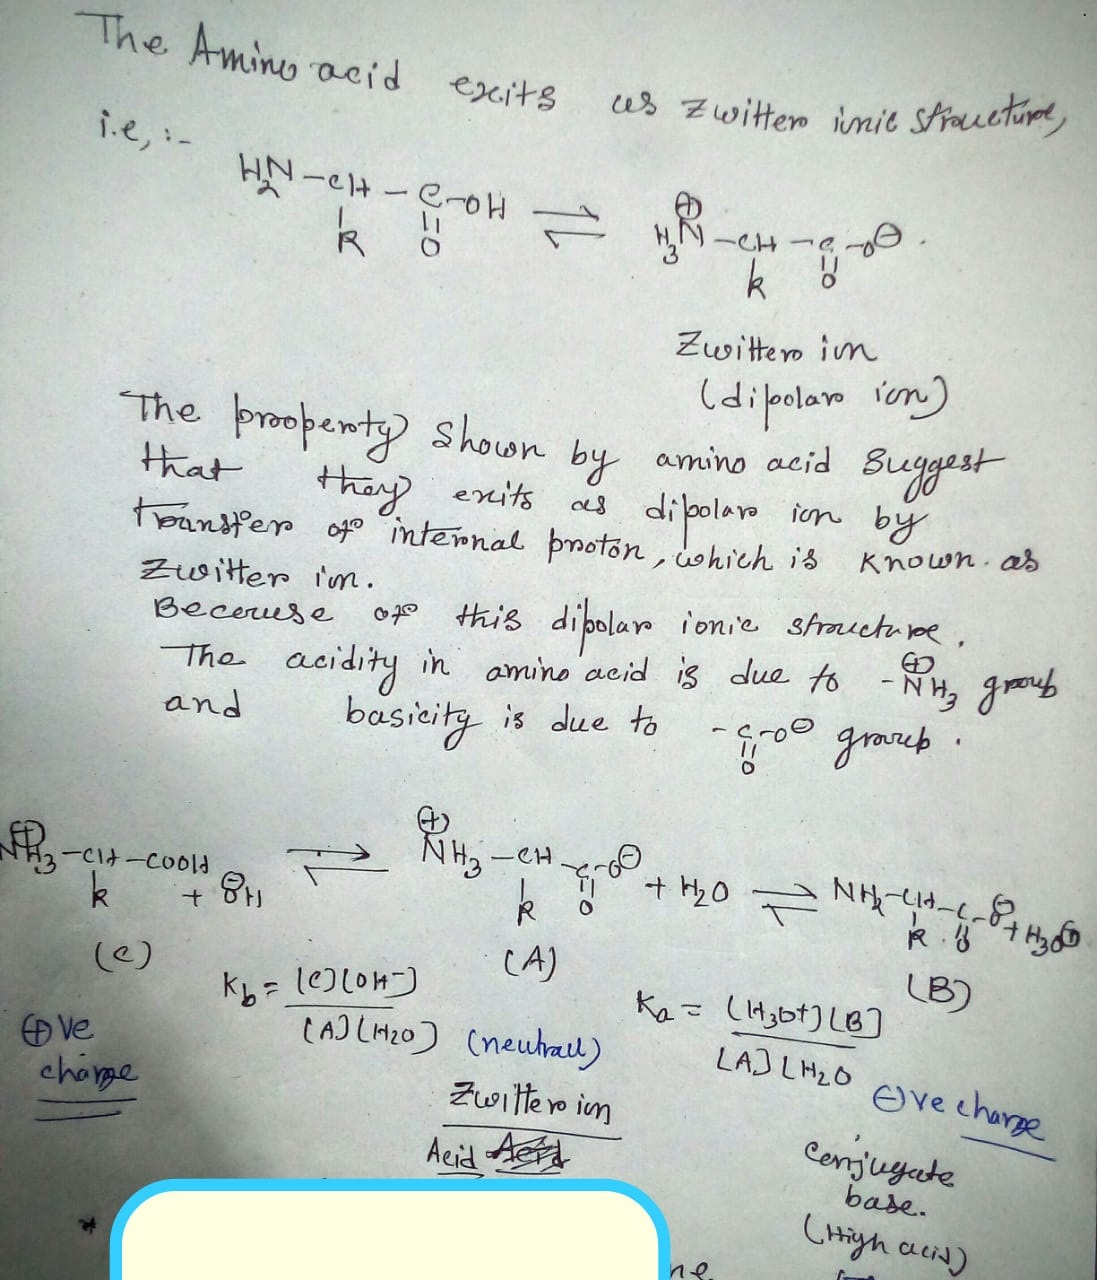 The Amino acid exits as Zwitter ionic structure,
i.e, :-
H2N-CH-C-OH ⇌ H3N⊕-CH-C-O⊖.
R O R O
Zwitter ion
(dipolar ion)
The property shown by amino acid suggest
that they exits as dipolar ion by
transfer of internal proton, which is known as
Zwitter ion.
Because of this dipolar ionic structure.
The acidity in amino acid is due to -N⊕H3 group
and basicity is due to -C-O⊖ group.
O
N⊕H3-CH-COOH + ⊖OH ⇌ ⊕NH3-CH-C-O⊖ + H2O ⇌ NH2-CH-C-O⊖ + H3O⊕
R R O R O
(C) (A) (B)
Kb = [C][OH-] / [A][H2O]
Ka = [H3O+][B] / [A][H2O
⊕ve
charge
(neutral)
Zwitter ion
Acid
⊖ve charge
Conjugate
base.
(High acid)
*
ne